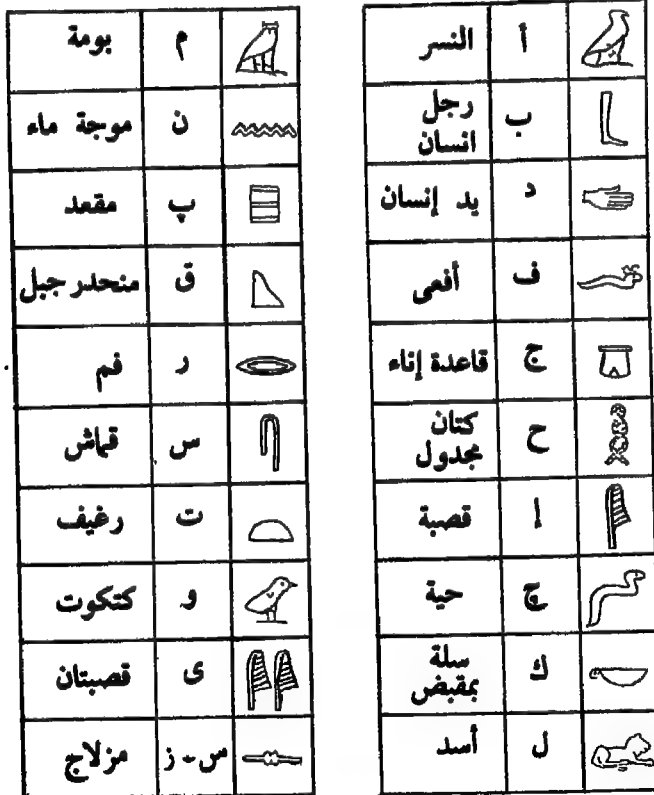 أ النسر
ب رجل
انسان
د يد إنسان
ف أفعى
ج قاعدة إناء
ح كتان
مجدول
إ قصبة
چ حية
ك سلة
بمقبض
ل أسد
م بومة
ن موجة ماء
پ مقعد
ق منحدر جبل
ر فم
س قماش
ت رغيف
و كتكوت
ى قصبتان
س - ز مزلاج